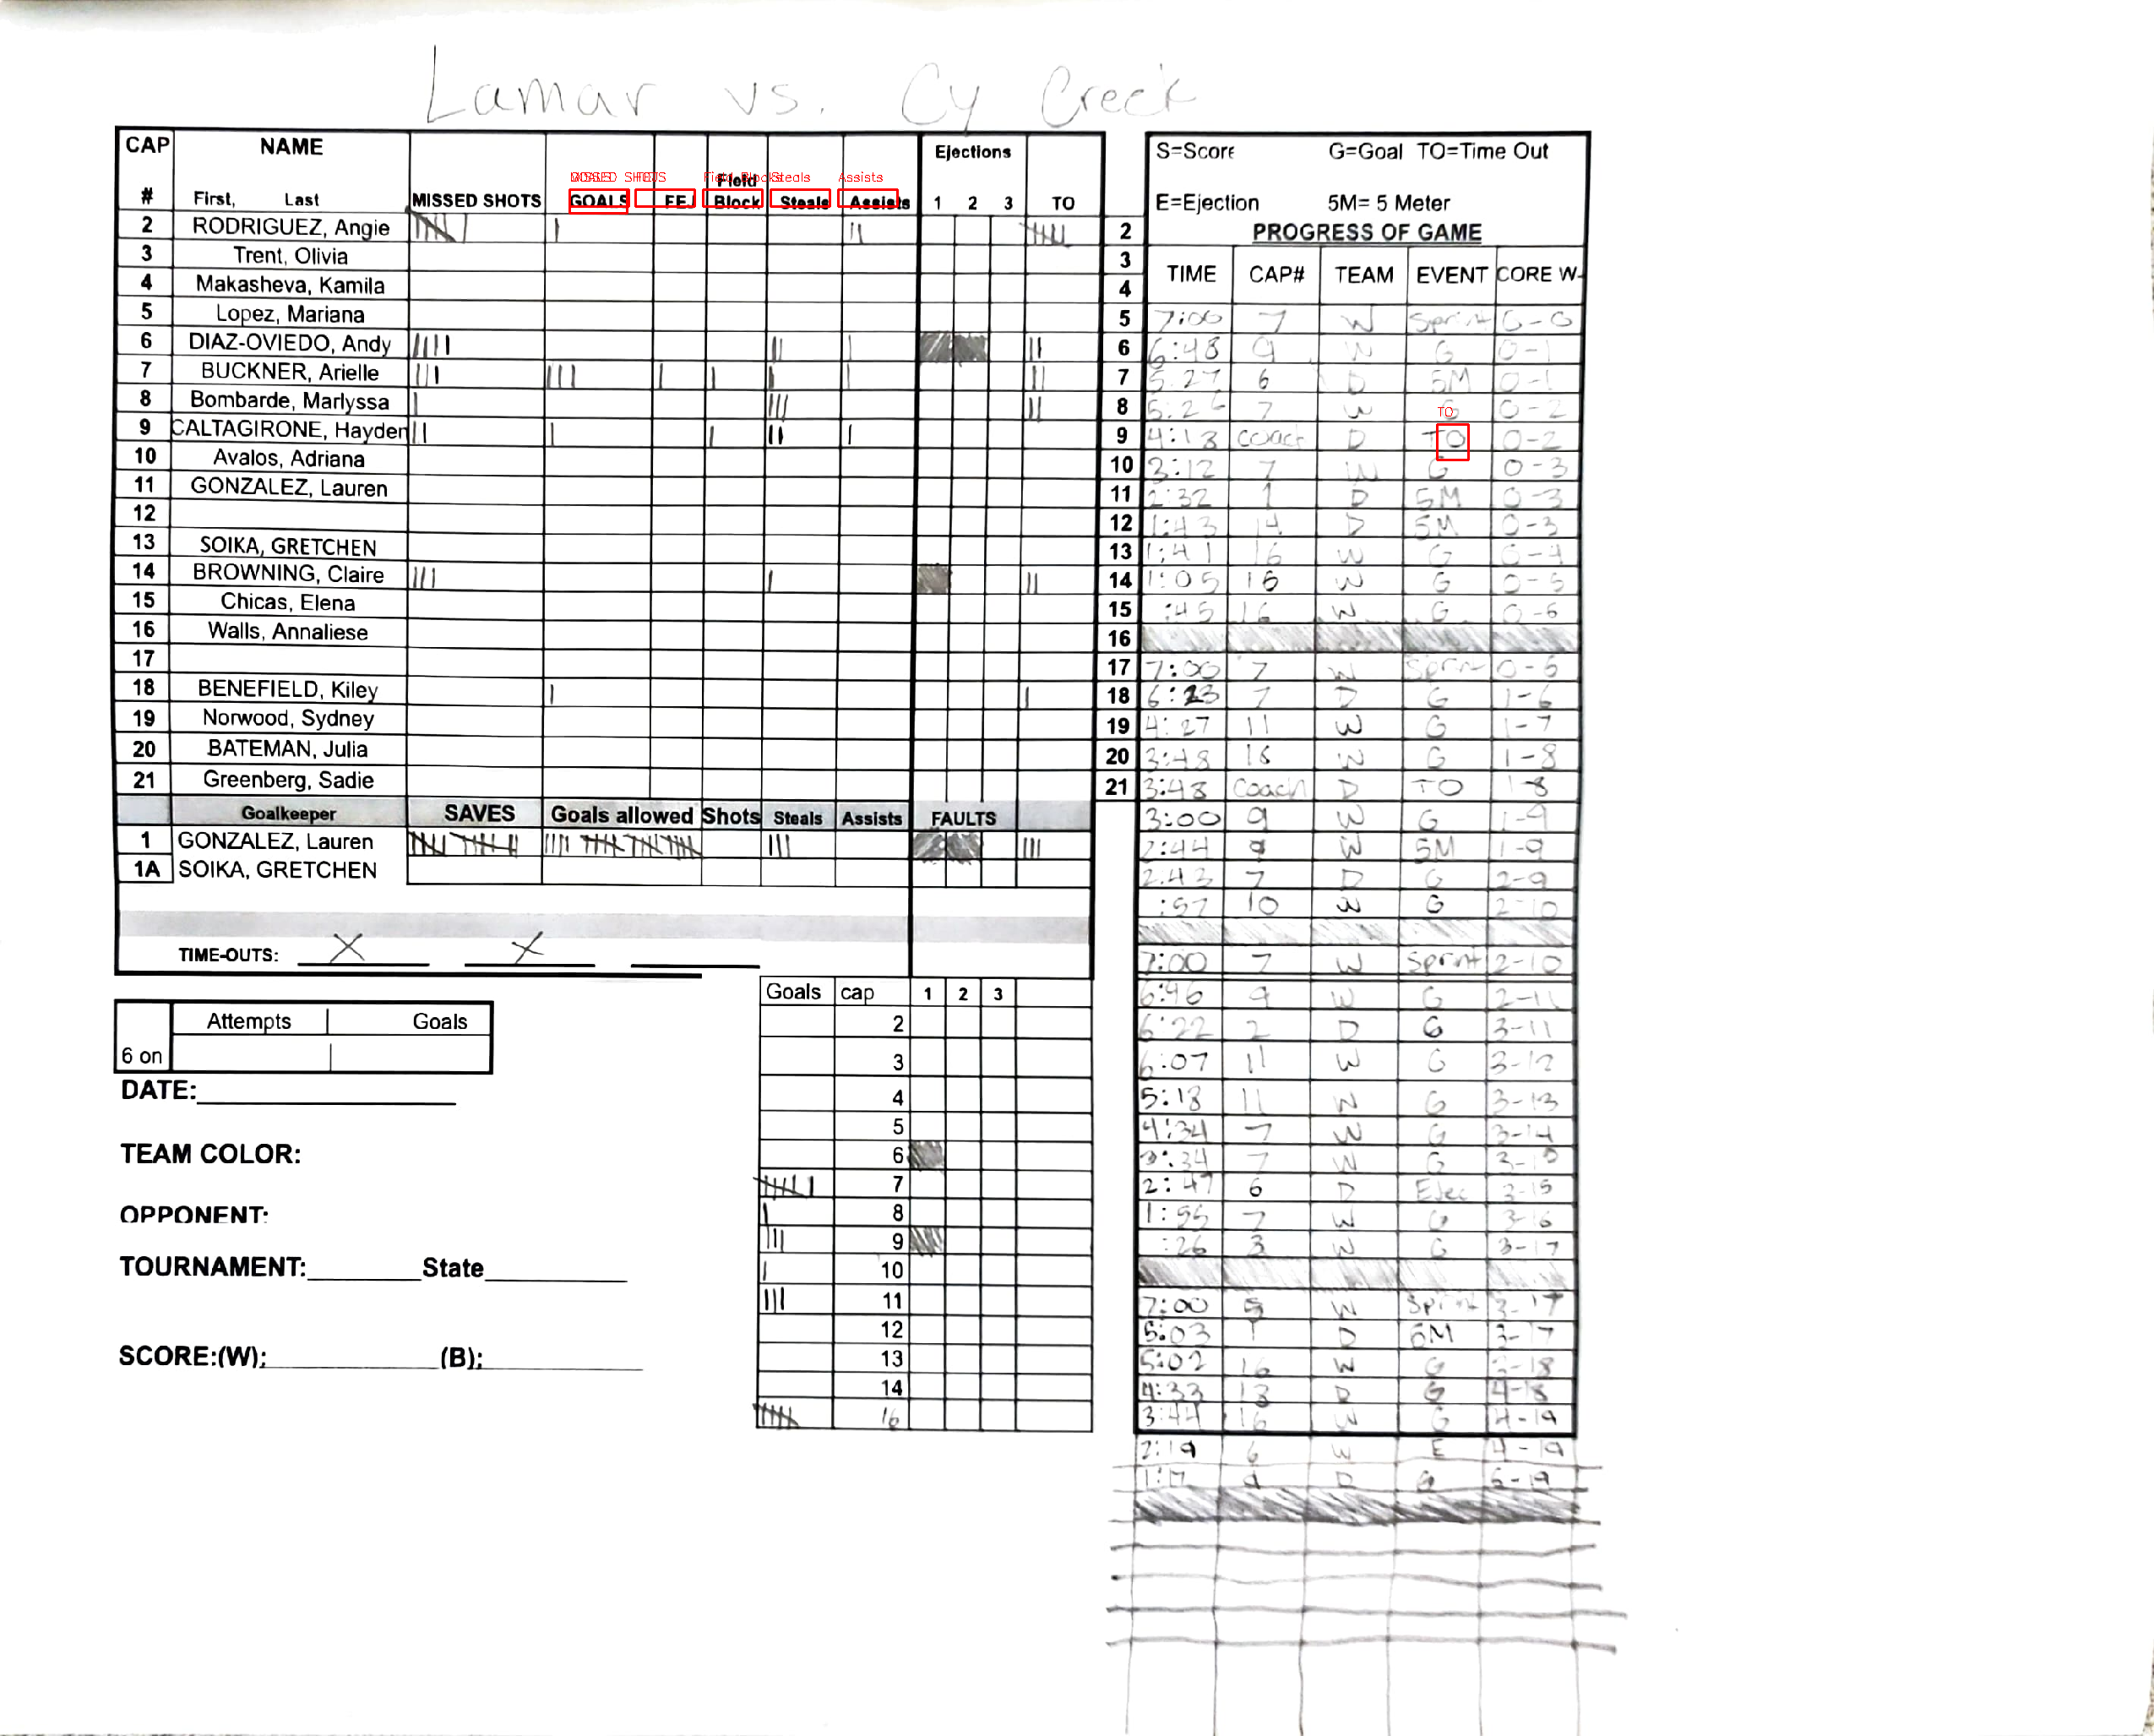 Lamar vs. Cy Creek
CAP # NAME First, Last MISSED SHOTS GOALS EEJ Field Block Steals Assists Ejections 1 2 3 TO
MISSED SHOTS Field Blocks Steals Assists
2 RODRIGUEZ, Angie
3 Trent, Olivia
4 Makasheva, Kamila
5 Lopez, Mariana
6 DIAZ-OVIEDO, Andy
7 BUCKNER, Arielle
8 Bombarde, Marlyssa
9 CALTAGIRONE, Hayden
10 Avalos, Adriana
11 GONZALEZ, Lauren
12
13 SOIKA, GRETCHEN
14 BROWNING, Claire
15 Chicas, Elena
16 Walls, Annaliese
17
18 BENEFIELD, Kiley
19 Norwood, Sydney
20 BATEMAN, Julia
21 Greenberg, Sadie
Goalkeeper SAVES Goals allowed Shots Steals Assists FAULTS
1 GONZALEZ, Lauren
1A SOIKA, GRETCHEN
TIME-OUTS: X X
Attempts Goals
6 on
DATE:
TEAM COLOR:
OPPONENT:
TOURNAMENT: State
SCORE:(W): (B):
Goals cap 1 2 3
2
3
4
5
6
7
8
9
10
11
12
13
14
16
2
3
4
5
6
7
8
9
10
11
12
13
14
15
16
17
18
19
20
21
S=Score G=Goal TO=Time Out
E=Ejection 5M= 5 Meter
PROGRESS OF GAME
TIME CAP# TEAM EVENT CORE W-
7:00 7 W Sprint 0-0
6:48 9 W G 0-1
5:27 6 D 5M 0-1
5:26 7 W G 0-2
TO
4:13 coach D TO 0-2
3:12 7 W G 0-3
2:32 1 D 5M 0-3
1:43 14 D 5M 0-3
1:41 16 W G 0-4
1:05 16 W G 0-5
:45 16 W G 0-6
7:00 7 W Sprint 0-6
6:23 7 D G 1-6
4:27 11 W G 1-7
3:48 16 W G 1-8
3:48 Coach D TO 1-8
3:00 9 W G 1-9
2:44 9 W 5M 1-9
2:43 7 D G 2-9
:57 10 W G 2-10
7:00 7 W Sprint 2-10
6:46 9 W G 2-11
6:22 2 D G 3-11
6:07 11 W G 3-12
5:18 11 W G 3-13
4:34 7 W G 3-14
3:34 7 W G 3-15
2:47 6 D Ejec 3-15
1:55 7 W G 3-16
:26 3 W G 3-17
7:00 W Sprint 3-17
5:03 1 D 5M 3-17
5:02 16 W G 3-18
4:33 13 D G 4-18
3:44 16 W G 4-19
2:19 6 W E 4-19
9 D G 5-19